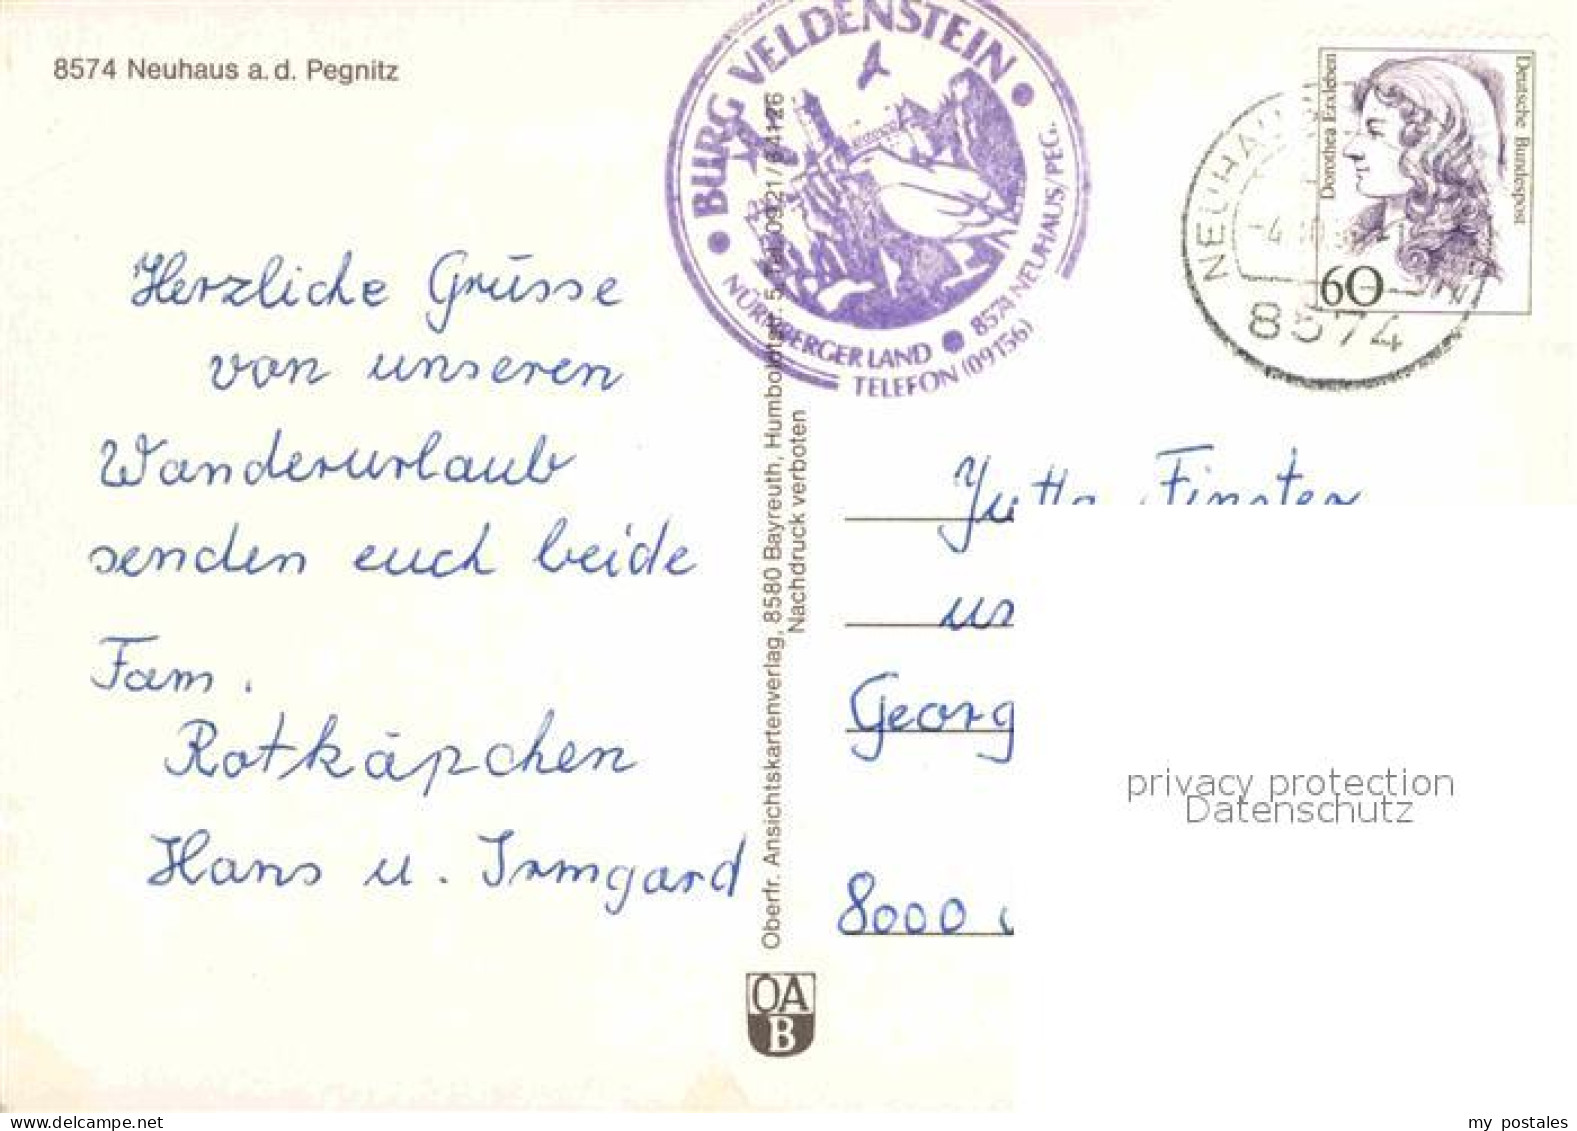 8574 Neuhaus a. d. Pegnitz
Herzliche Grüsse
von unseren
Wanderurlaub
senden euch beide
Fam.
Rotkäpchen
Hans u. Irmgard
BURG VELDENSTEIN
NÜRNBERGER LAND
8574 NEUHAUS/PEG.
TELEFON (09156)
Oberfr. Ansichtskartenverlag, 8580 Bayreuth, Humboldtstr. 5, Tel. 0921/64126
Nachdruck verboten
OA
B
Deutsche Bundespost
Dorothea Erxleben
60
8574
Jutta Finster
Georg
8000
privacy protection
Datenschutz
my postales